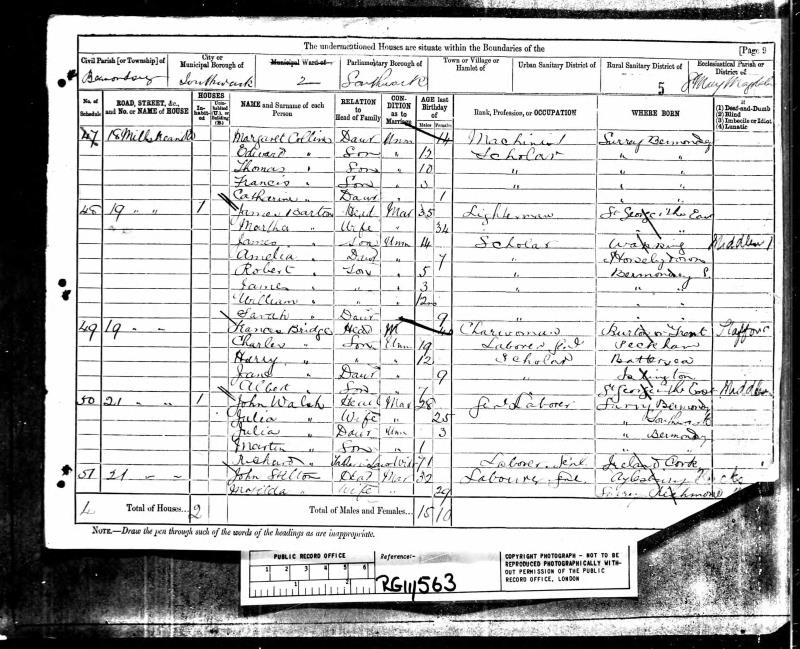 The undermentioned Houses are situate within the Boundaries of the [Page 9
Civil Parish [or Township] of
City or Municipal Borough of
Municipal Ward of
Parliamentary Borough of
Town or Village or Hamlet of
Urban Sanitary District of
Rural Sanitary District of
Ecclesiastical Parish or District of
Bermondsey Southwark 2 Southwark 5 St Mary Magdalen
No. of Schedule
ROAD, STREET, &c., and No. or NAME of HOUSE
HOUSES
Inhabited
NAME and Surname of each Person
RELATION to Head of Family
CONDITION as to Marriage
AGE last Birthday of
Males Females
Rank, Profession, or OCCUPATION
WHERE BORN
If
(1) Deaf-and-Dumb
(2) Blind
(3) Imbecile or Idiot
(4) Lunatic
47 18 Margaret Collins Daur Unm 14 Machinist Surrey Bermondsey
Edward " Son 12 Scholar " "
Thomas " Son 10 " " "
Francis " Son 3 " "
Catherine " Daur 1 " "
48 19 " " 1 James Barton Head Mar 35 Lighterman St George the East
Martha " Wife " 34
James " Son Unm 14 Scholar Wapping Middlesex
Amelia " Daur 7 " Horselydown
Robert " Son 5 " Bermondsey
James " " 3 " "
William " " 12
Sarah " Daur 9 " "
49 19 " " Frances Bridge Head 40 Charwoman Burton Trent
Charles " Son Unm 19 Laborer Peckham
Harry " " 12 Scholar Battersea
Jane " Daur 9 "
Albert " Son 7 St George the East Middlesex
50 21 " " 1 John Walsh Head Mar 28 Genl Laborer Surry Bermondsey
Julia " Wife " 25 " Southwark
Julia " Daur Unm 3 " Bermondsey
Martin " Son 1 " "
Richard " Father in Law Widr 71 Laborer Ireland Cork
51 21 " " John Skelton Head Mar 32 Labourer Aylesbury Bucks
Matilda " Wife " 29 Surrey Richmond
4 Total of Houses... 2 Total of Males and Females... 15 10
NOTE.—Draw the pen through such of the words of the headings as are inappropriate.
PUBLIC RECORD OFFICE
1 2 3 4 5 6
1 2
Reference:-
RG11/563
COPYRIGHT PHOTOGRAPH - NOT TO BE
REPRODUCED PHOTOGRAPHICALLY WITH-
OUT PERMISSION OF THE PUBLIC
RECORD OFFICE, LONDON